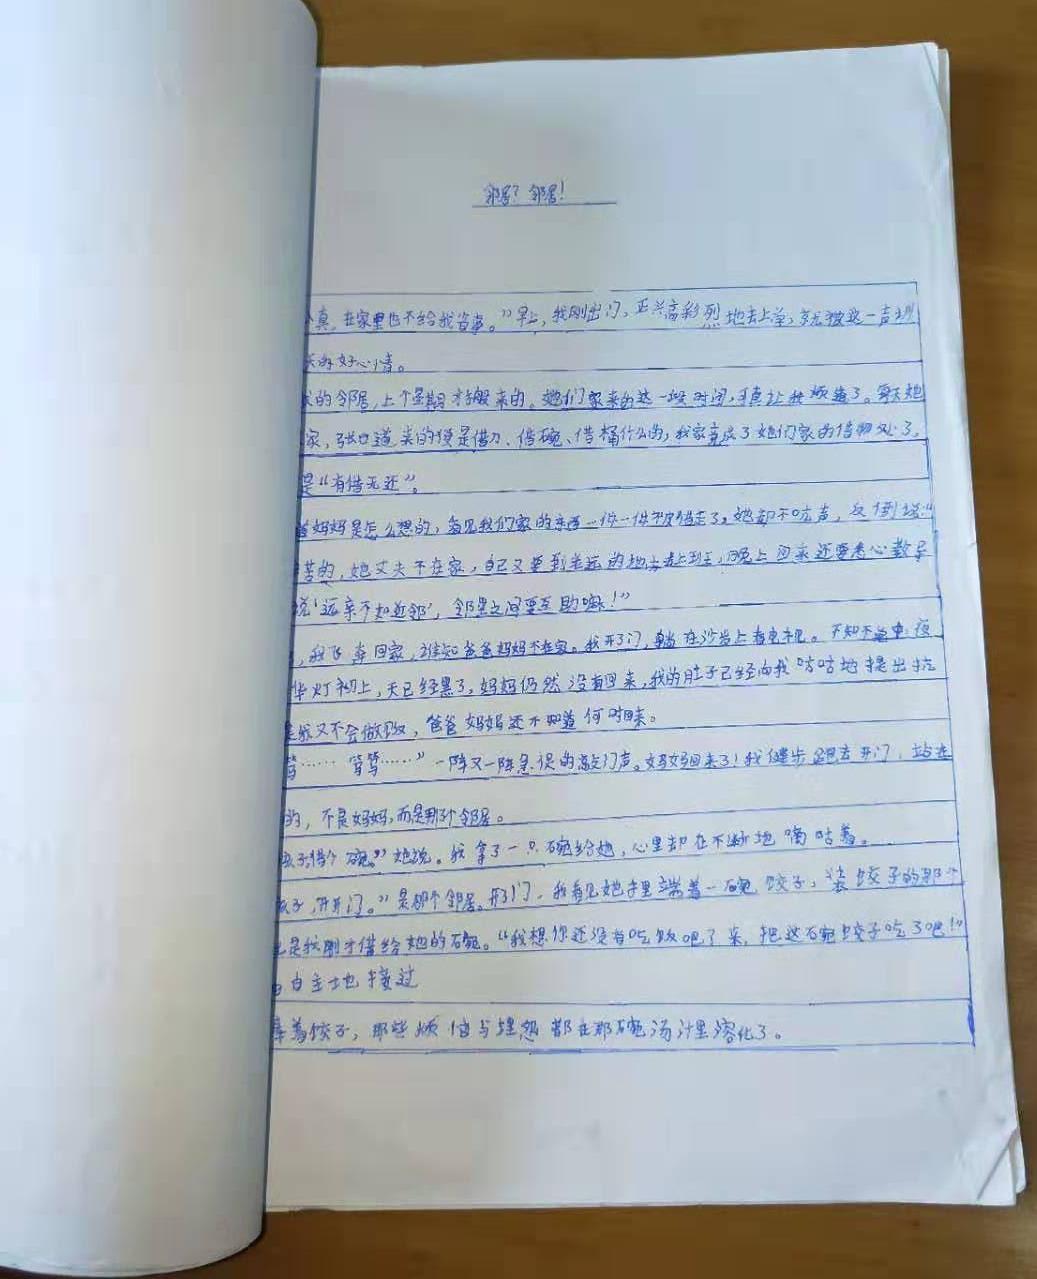 邻居？邻居！
真，在家里也不给我省事。”早上，我刚出门，正兴高彩烈地去上学，就被这一声
天的好心情。
的邻居，上个星期才搬来的。她们家来的这一段时间，可真让我烦透了。每天她
家，张口道来的便是借刀、借碗、借桶什么的，我家竟成了她们家的借物处了，
是“有借无还”。
着妈妈是怎么想的，看见我们家的东西一件一件不没借走了。她却不吭声，反倒说：“
苦的，她丈夫不在家，自己又要到老远的地方去上班，晚上回来还要悉心教导
说‘远亲不如近邻’，邻里之间要互助嘛！”
，我飞奔回家，谁知爸爸妈妈不在家。我开了门，躺在沙发上看电视。不知不觉中，夜
华灯初上，天已经黑了，妈妈仍然没有回来，我的肚子已经向我咕咕地提出抗
是我又不会做饭，爸爸妈妈还不知道何时回来。
笃…… 笃笃……”一阵又一阵急促的敲门声。妈妈回来了！我健步跑去开门，站在
的，不是妈妈，而是那个邻居。
孩子，借个碗。”她说。我拿了一只碗给她，心里却在不断地嘀咕着。
孩子，开开门。”是那个邻居。开了门，我看见她手里端着一碗饺子，装饺子的那个
是我刚才借给她的碗。“我想你还没有吃饭吧？来，把这碗饺子吃了吧！”
由自主地接过
着饺子，那些烦恼与埋怨都在那碗汤汁里溶化了。